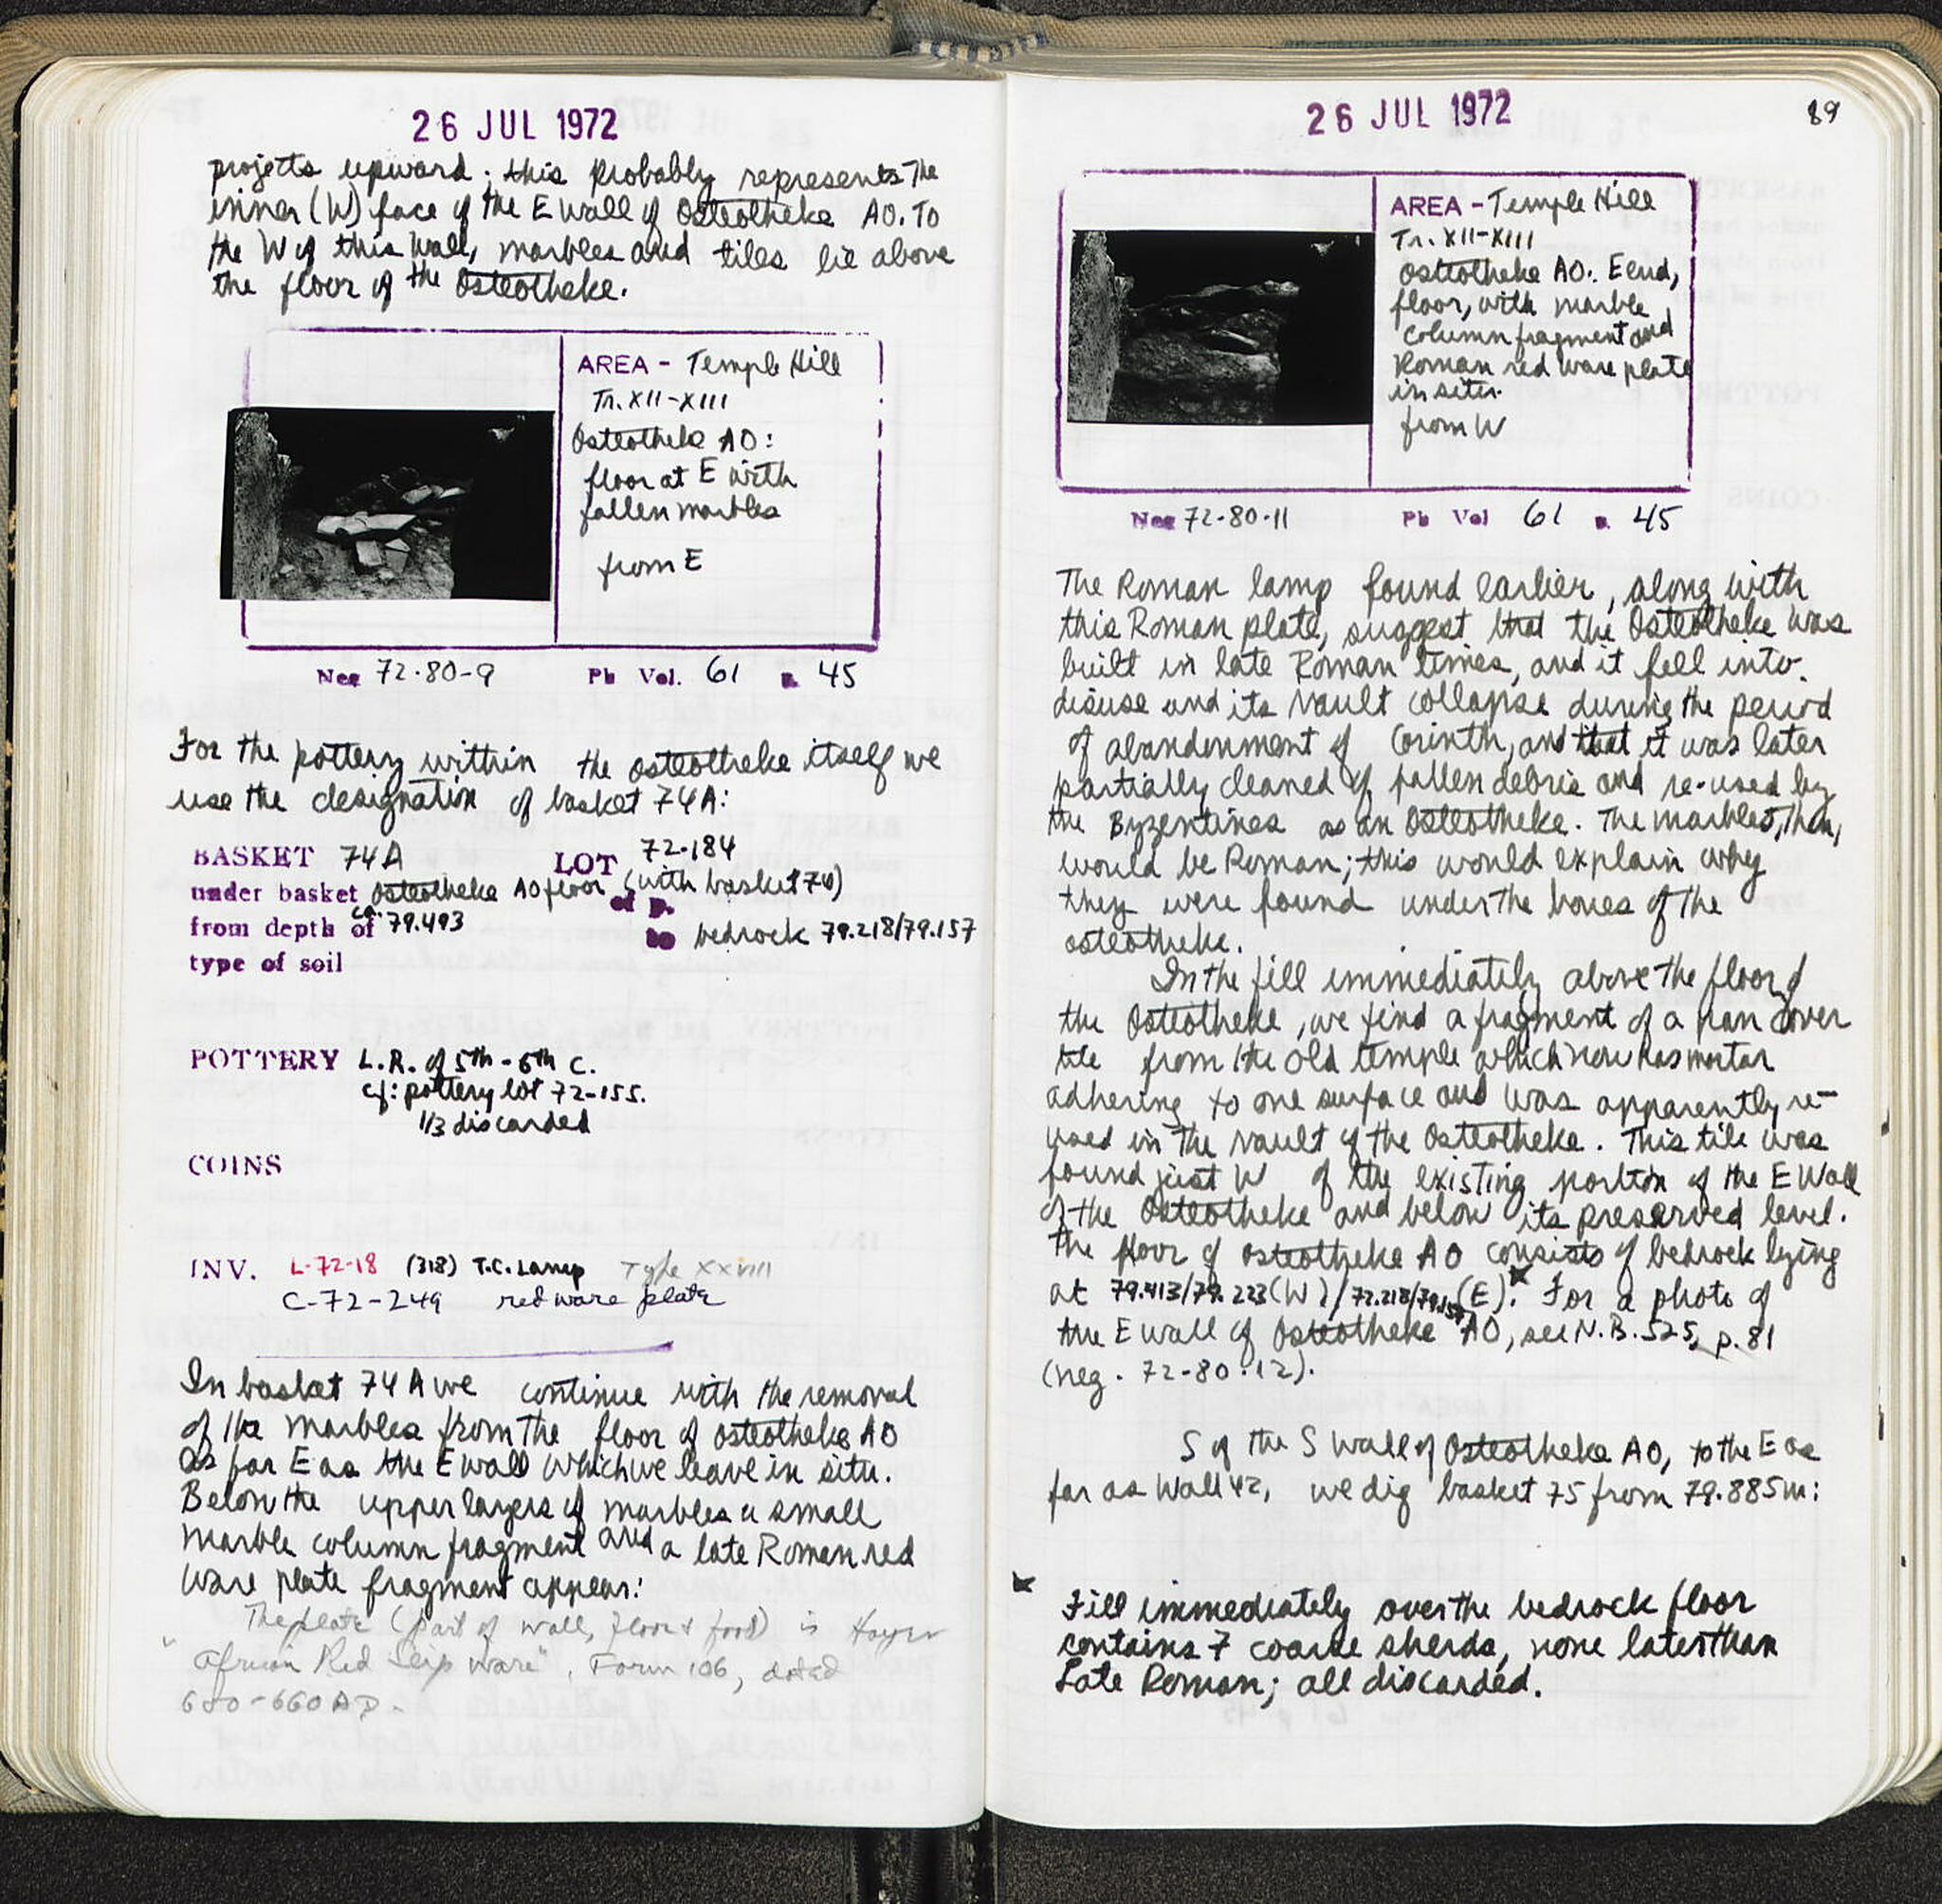 26 JUL 1972
projects upward; this probably represents the
inner (W) face of the E wall of Osteotheke AO. To
the W of this wall, marbles and tiles lie above
the floor of the Osteotheke.
AREA - Temple Hill
Tr. XII-XIII
Osteotheke AO:
floor at E with
fallen marbles
from E
Neg 72-80-9 Pb Vol. 61 p. 45
For the pottery within the osteotheke itself we
use the designation of basket 74A:
BASKET 74A LOT 72-184
under basket Osteotheke AO floor (with basket 74) of p.
from depth of ca. 79.493 to bedrock 79.218/79.157
type of soil
POTTERY L.R. of 5th - 6th C.
cf: pottery lot 72-155.
1/3 discarded
COINS
INV. L-72-18 (318) T.C. Lamp Type XXVIII
C-72-249 red ware plate
In basket 74A we continue with the removal
of the marbles from the floor of osteotheke AO
as far E as the E wall which we leave in situ.
Below the upper layers of marbles a small
marble column fragment and a late Roman red
ware plate fragment appear:
The plate (part of wall, floor & foot) is Hayes
"African Red Slip Ware", Form 106, dated
600-660 AD.
26 JUL 1972
89
AREA - Temple Hill
Tr. XII-XIII
Osteotheke AO: E end,
floor, with marble
column fragment and
Roman red ware plate
in situ.
from W
Neg 72-80-11 Pb Vol 61 p. 45
The Roman lamp found earlier, along with
this Roman plate, suggest that the Osteotheke was
built in late Roman times, and it fell into
disuse and its vault collapse during the period
of abandonment of Corinth, and that it was later
partially cleaned of fallen debris and re-used by
the Byzentines as an Osteotheke. The marbles, then,
would be Roman; this would explain why
they were found under the bones of the
osteotheke.
In the fill immediately above the floor of
the Osteotheke, we find a fragment of a pan cover
tile from the old temple which now has mortar
adhering to one surface and was apparently re-
used in the vault of the Osteotheke. This tile was
found just W of the existing portion of the E Wall
of the Osteotheke and below its preserved level.
The floor of osteotheke AO consists of bedrock lying
at 79.413/79.223(W)/72.218/79.157(E).* For a photo of
the E wall of Osteotheke AO, see N.B. 525, p. 81
(neg. 72-80-12).
S of the S wall of Osteotheke AO, to the E as
far as Wall 42, we dig basket 75 from 79.885m:
* Fill immediately over the bedrock floor
contains 7 coarse sherds, none later than
Late Roman; all discarded.